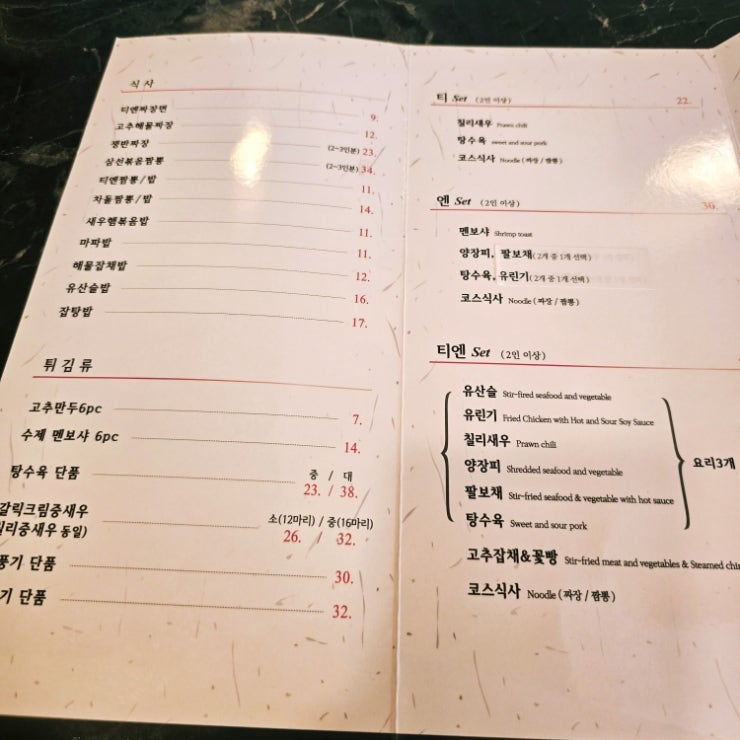 식사
티엔짜장면 9.
고추해물짜장 12.
쟁반짜장 (2~3인분) 23.
삼선볶음짬뽕 (2~3인분) 34.
티엔짬뽕/밥 11.
차돌짬뽕/밥 14.
새우햄볶음밥 11.
마파밥 11.
해물잡채밥 12.
유산슬밥 16.
잡탕밥 17.
튀김류
고추만두6pc 7.
수제 멘보샤 6pc 14.
탕수육 단품 중 / 대
23. / 38.
갈릭크림중새우 소(12마리) / 중(16마리)
리중새우 동일) 26. / 32.
풍기 단품 30.
기 단품 32.
티 Set (2인 이상) 22.
칠리새우 Prawn chili
탕수육 sweet and sour pork
코스식사 Noodle (짜장 / 짬뽕)
엔 Set (2인 이상) 30.
멘보샤 Shrimp toast
양장피, 팔보채(2개 중 1개 선택)
탕수육, 유린기(2개 중 1개 선택)
코스식사 Noodle (짜장 / 짬뽕)
티엔 Set (2인 이상)
유산슬 Stir-fired seafood and vegetable
유린기 Fried Chicken with Hot and Sour Soy Sauce
칠리새우 Prawn chili
양장피 Shredded seafood and vegetable
팔보채 Stir-fried seafood & vegetable with hot sauce
탕수육 Sweet and sour pork
요리3개
고추잡채&꽃빵 Stir-fried meat and vegetables & Steamed chin
코스식사 Noodle (짜장 / 짬뽕)